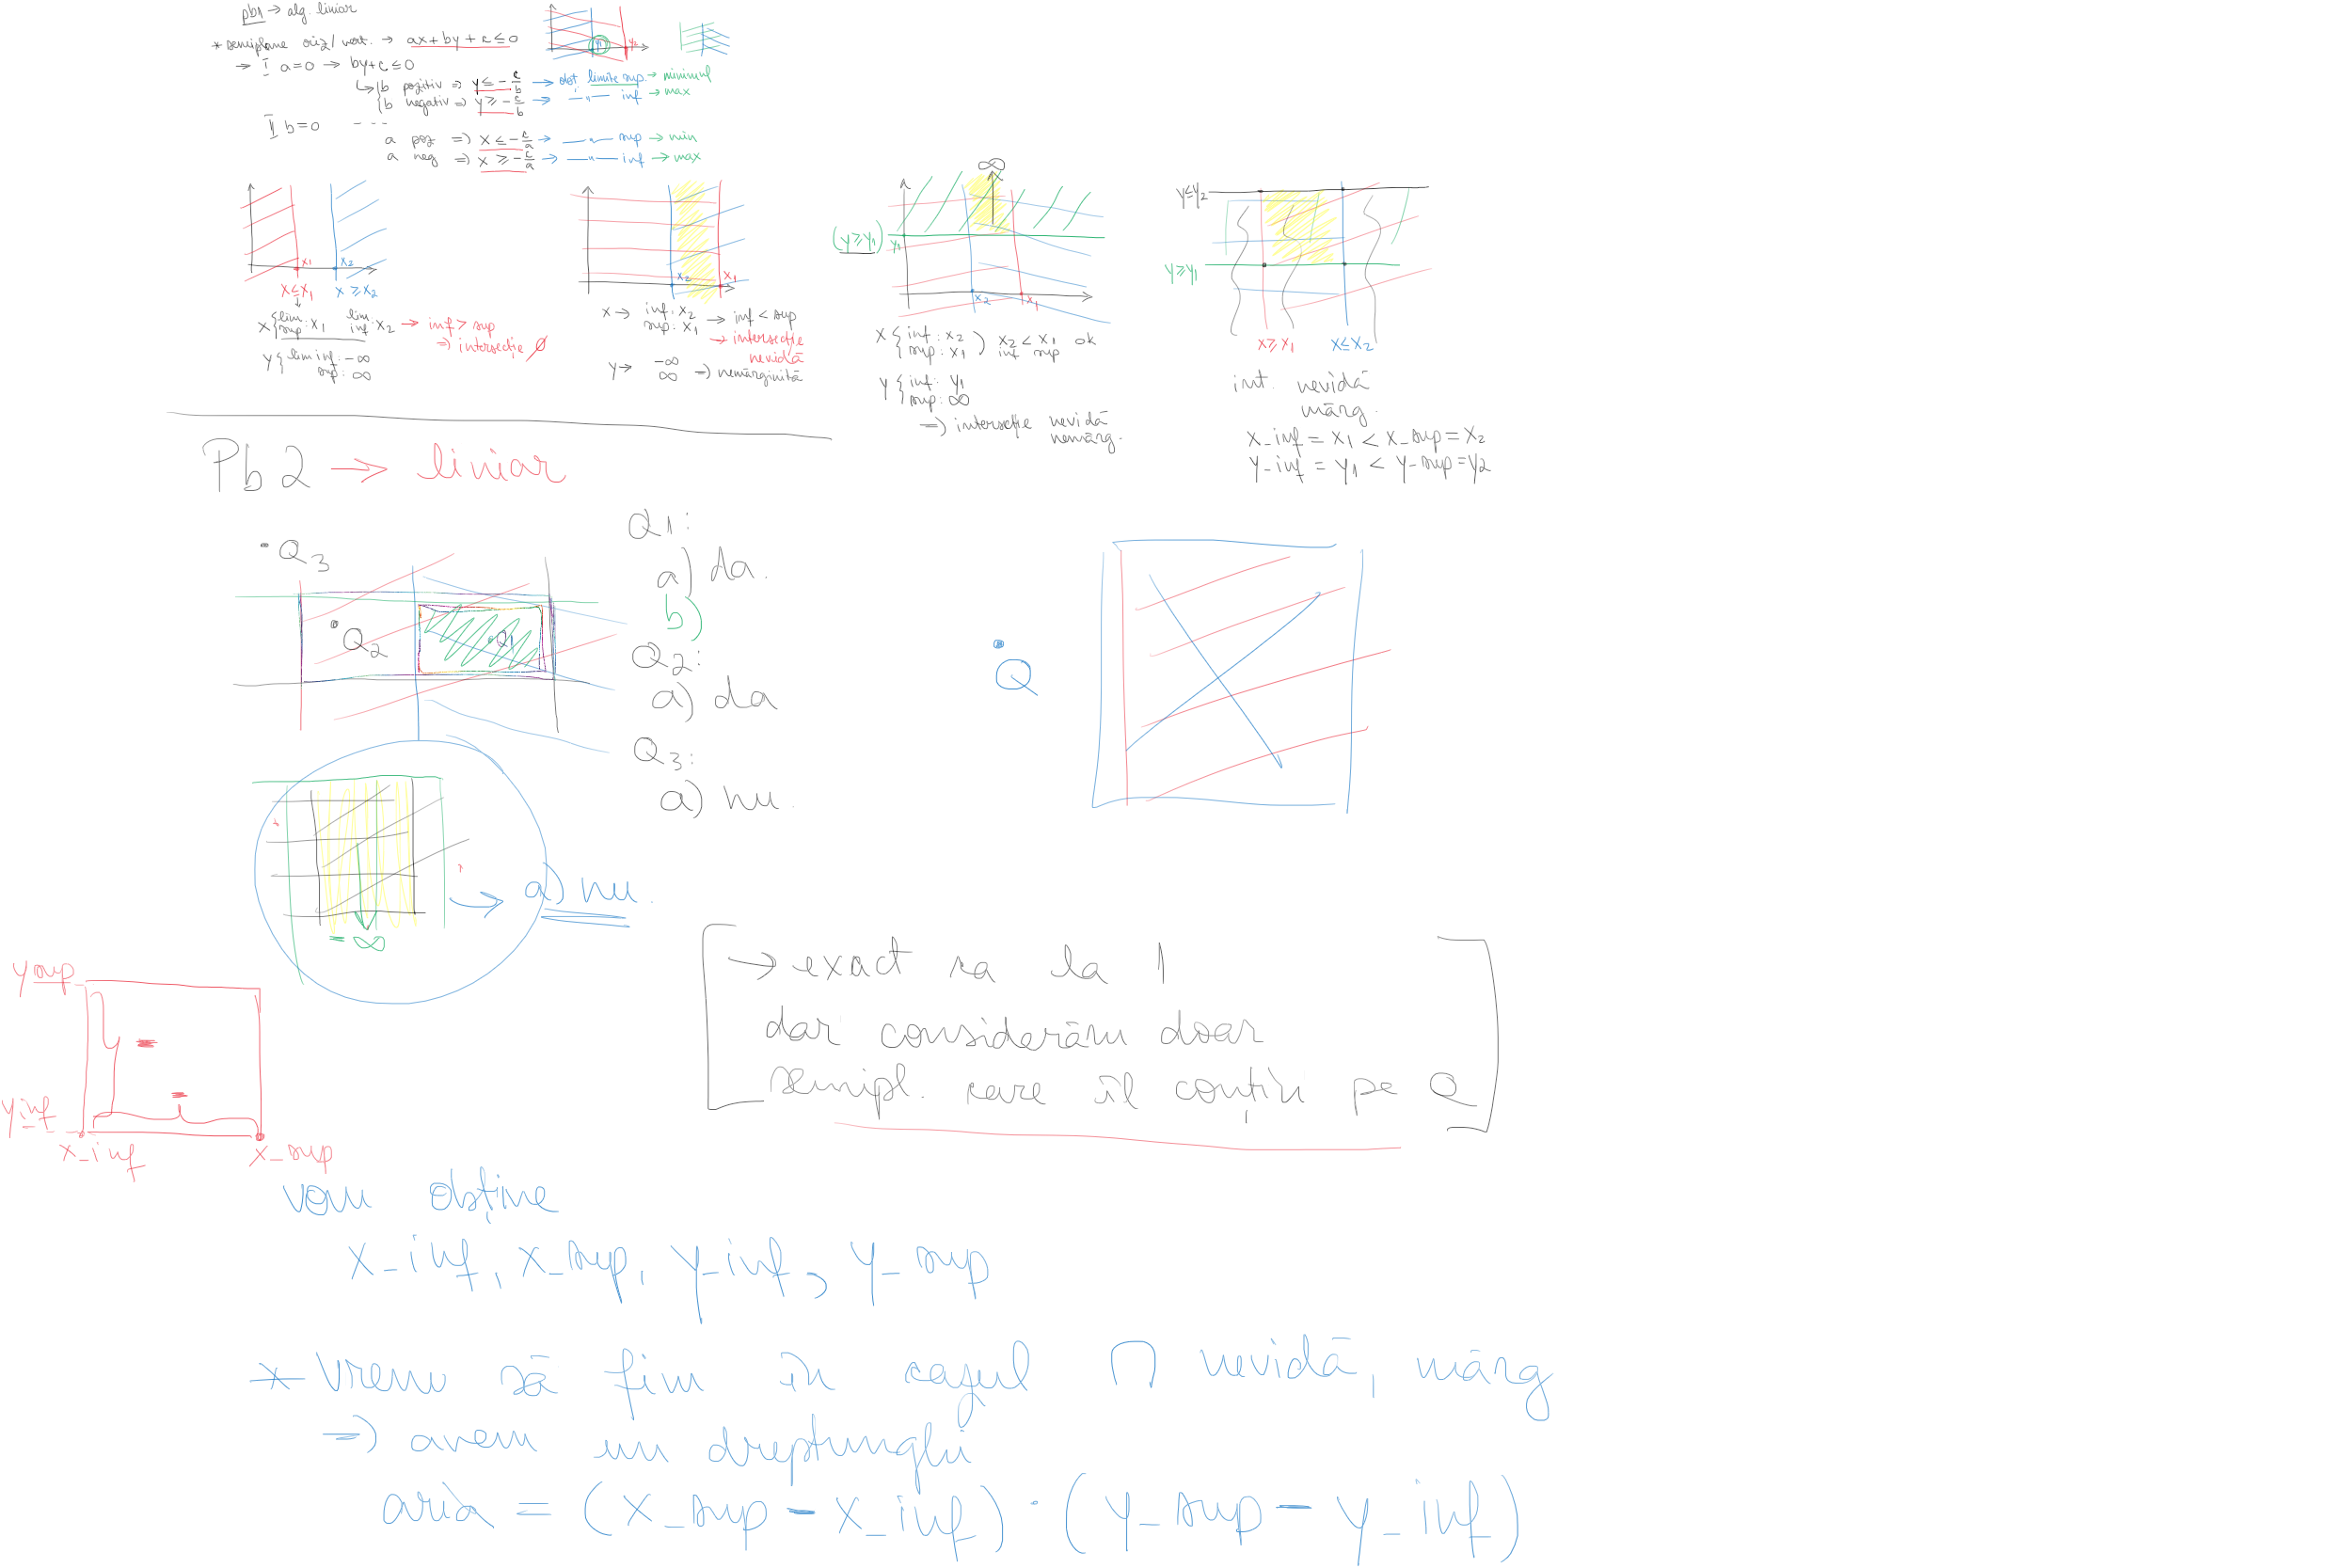 pb1 → alg. liniar
* semiplane oriz/vert. → ax + by + c ≤ 0
→ I a=0 → by+c ≤ 0
b pozitiv ⇒ y ≤ -c/b → obt limite sup. → minimul
b negativ ⇒ y ≥ -c/b → —"— inf → max
II b=0 ---
a poz ⇒ x ≤ -c/a → —"— sup → min
a neg ⇒ x ≥ -c/a → —"— inf → max
y1 y2
x1 x2
x ≤ x1 x ≥ x2
x { lim. sup: x1 lim. inf: x2 → inf > sup
⇒ intersecție ∅
y { lim inf: -∞
sup: ∞
x2 x1
x → inf: x2
sup: x1 → inf < sup
→ intersecție
nevidă
y → -∞
∞ ⇒ nemărginită
∞
(y ≥ y1) y1
x2 x1
x { inf: x2
sup: x1 ) x2 < x1 ok
inf sup
y { inf: y1
sup: ∞
⇒ intersecție nevidă
nemărg.
y ≤ y2
y ≥ y1
x ≥ x1 x ≤ x2
int. nevidă
mărg.
x_inf = x1 < x_sup = x2
y_inf = y1 < y_sup = y2
Pb 2 → liniar
Q3
Q2
Q1
Q1:
a) da.
b)
Q2:
a) da
Q3:
a) nu.
Q
= ∞
→ a) nu.
y_sup
y_inf
x_inf x_sup
→ exact ca la 1
dar considerăm doar
semipl. care îl conțin pe Q
vom obține
x_inf, x_sup, y_inf, y_sup
* vrem să fim în cazul ∩ nevidă, mărg
⇒ avem un dreptunghi
aria = (x_sup - x_inf) · (y_sup - y_inf)